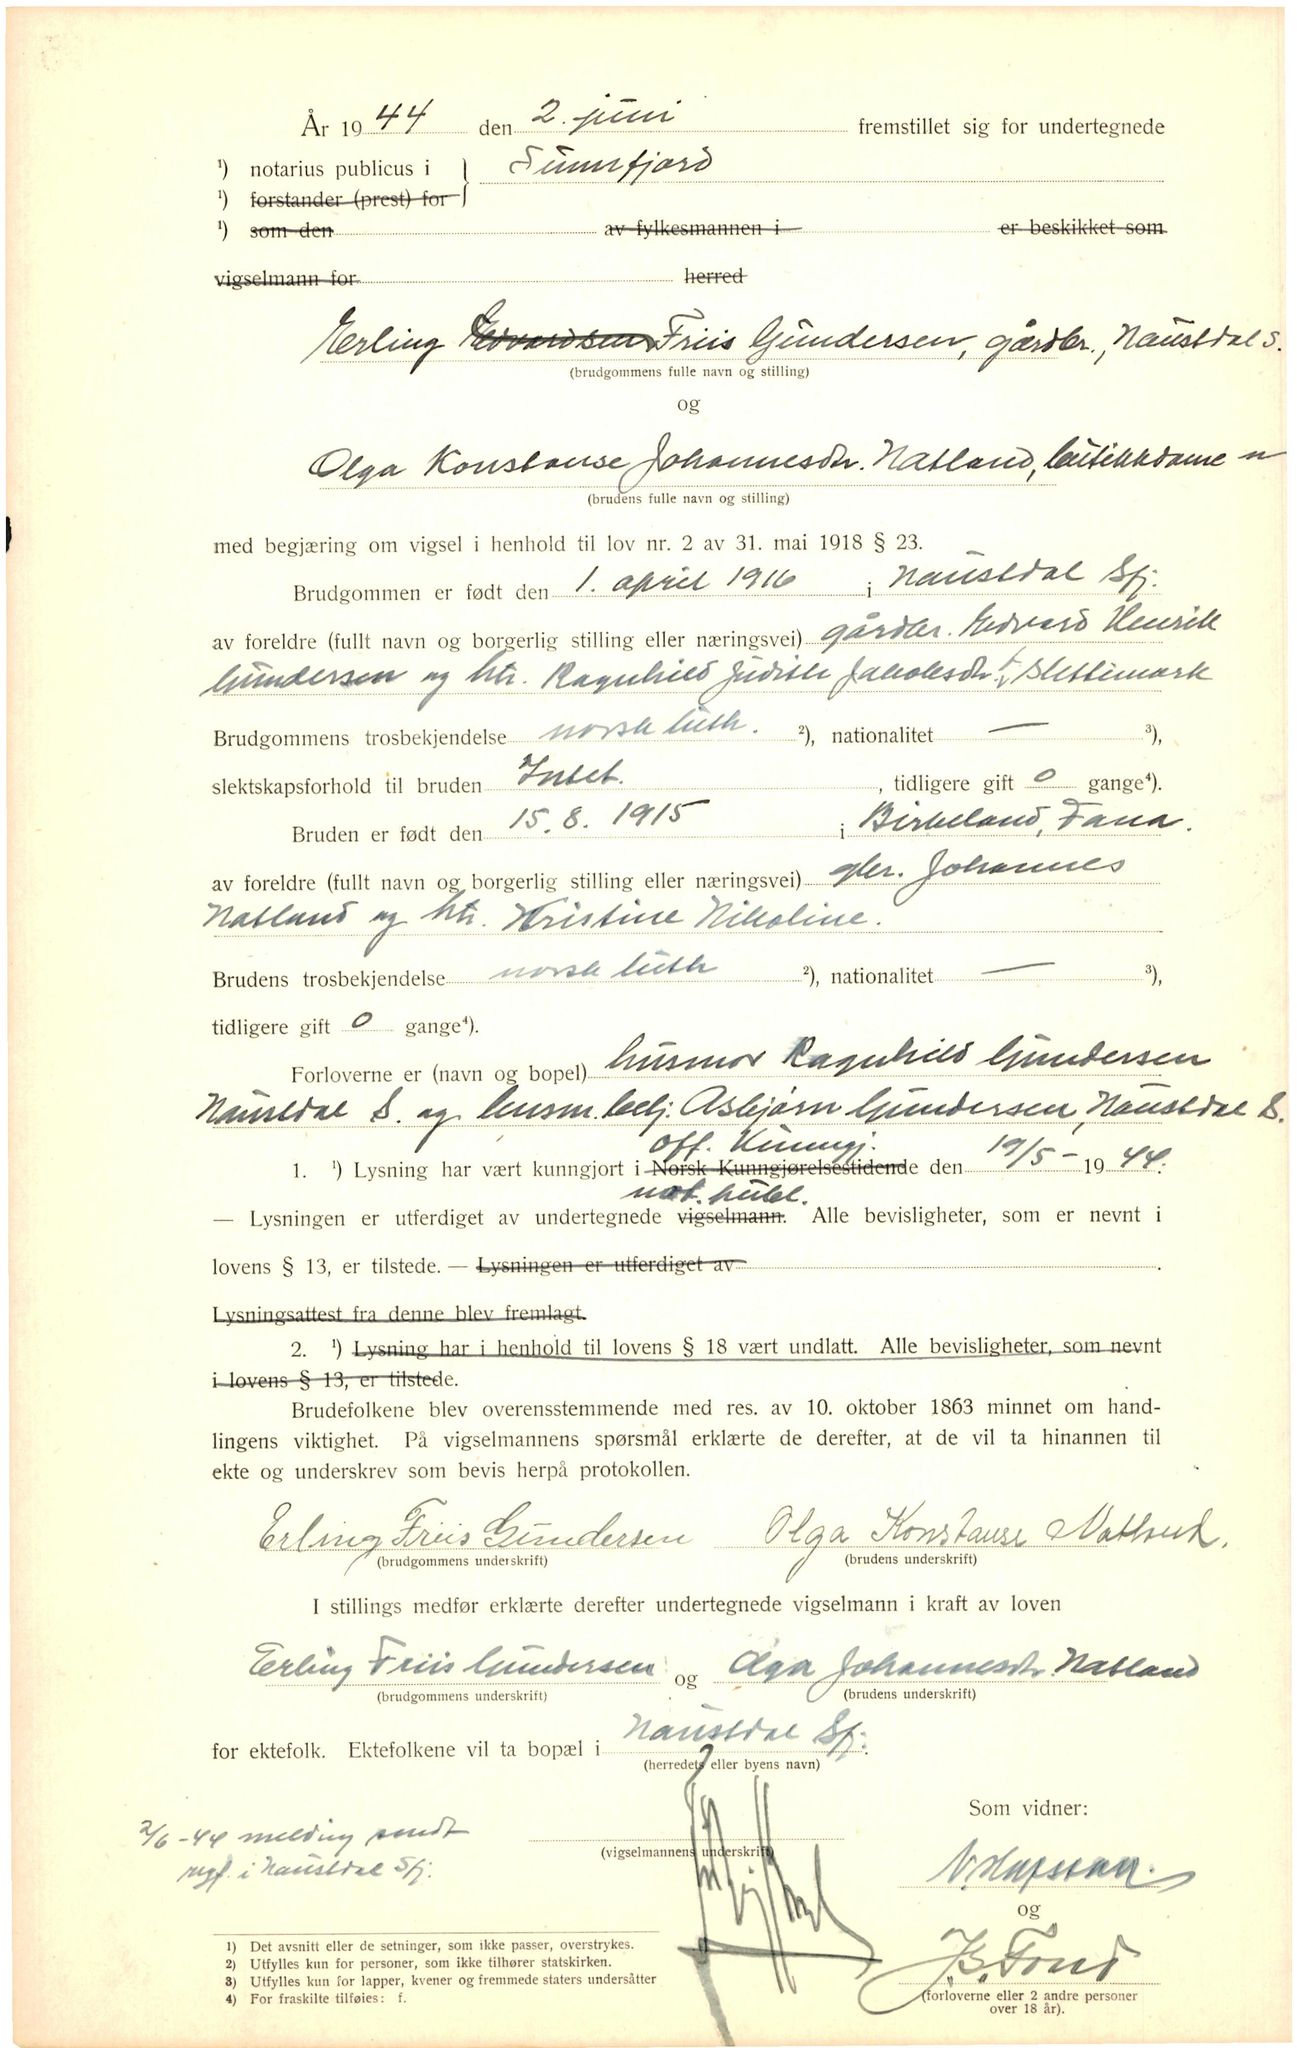 År 1944 den 2. juni fremstillet sig for undertegnede
¹) notarius publicus i } Sunnfjord
¹) forstander (prest) for
¹) som den av fylkesmannen i er beskikket som
vigselmann for herred
Erling Edvardsen Friis Gundersen, gårdbr., Naustdal S.
(brudgommens fulle navn og stilling)
og
Olga Konstanse Johannesdtr. Natland, butikkdame "
(brudens fulle navn og stilling)
med begjæring om vigsel i henhold til lov nr. 2 av 31. mai 1918 § 23.
Brudgommen er født den 1. april 1916 i Naustdal Sfj.
av foreldre (fullt navn og borgerlig stilling eller næringsvei) gårdbr. Edvard Henrik
Gundersen og htr. Ragnhild Judith Jakobsdtr. f. Slettemark
Brudgommens trosbekjendelse norsk luth. ²), nationalitet — ³),
slektskapsforhold til bruden Intet. , tidligere gift 0 gange⁴).
Bruden er født den 15. 8. 1915 i Birkeland, Fana.
av foreldre (fullt navn og borgerlig stilling eller næringsvei) gbr. Johannes
Natland og htr. Kristine Nikoline.
Brudens trosbekjendelse norsk luth ²), nationalitet — ³),
tidligere gift 0 gange⁴).
Forloverne er (navn og bopel) husmor Ragnhild Gundersen
Naustdal S. og lensm.betj. Asbjørn Gundersen, Naustdal S.
off. Kunngj.
1. ¹) Lysning har vært kunngjort i Norsk Kunngjørelsestidende den 19/5 - 1944.
not. publ.
— Lysningen er utferdiget av undertegnede vigselmann. Alle bevisligheter, som er nevnt i
lovens § 13, er tilstede. — Lysningen er utferdiget av .
Lysningsattest fra denne blev fremlagt.
2. ¹) Lysning har i henhold til lovens § 18 vært undlatt. Alle bevisligheter, som nevnt
i lovens § 13, er tilstede.
Brudefolkene blev overensstemmende med res. av 10. oktober 1863 minnet om hand-
lingens viktighet. På vigselmannens spørsmål erklærte de derefter, at de vil ta hinannen til
ekte og underskrev som bevis herpå protokollen.
Erling Friis Gundersen Olga Konstanse Natland.
(brudgommens underskrift) (brudens underskrift)
I stillings medfør erklærte derefter undertegnede vigselmann i kraft av loven
Erling Friis Gundersen og Olga Johannesdtr. Natland
(brudgommens underskrift) (brudens underskrift)
for ektefolk. Ektefolkene vil ta bopæl i Naustdal Sfj.
(herredets eller byens navn)
Som vidner:
2/6-44 melding sendt
regf. i Naustdal Sfj.
(vigselmannens underskrift)
og
J. B. Tond
(forloverne eller 2 andre personer
over 18 år).
1) Det avsnitt eller de setninger, som ikke passer, overstrykes.
2) Utfylles kun for personer, som ikke tilhører statskirken.
3) Utfylles kun for lapper, kvener og fremmede staters undersåtter
4) For fraskilte tilføies: f.